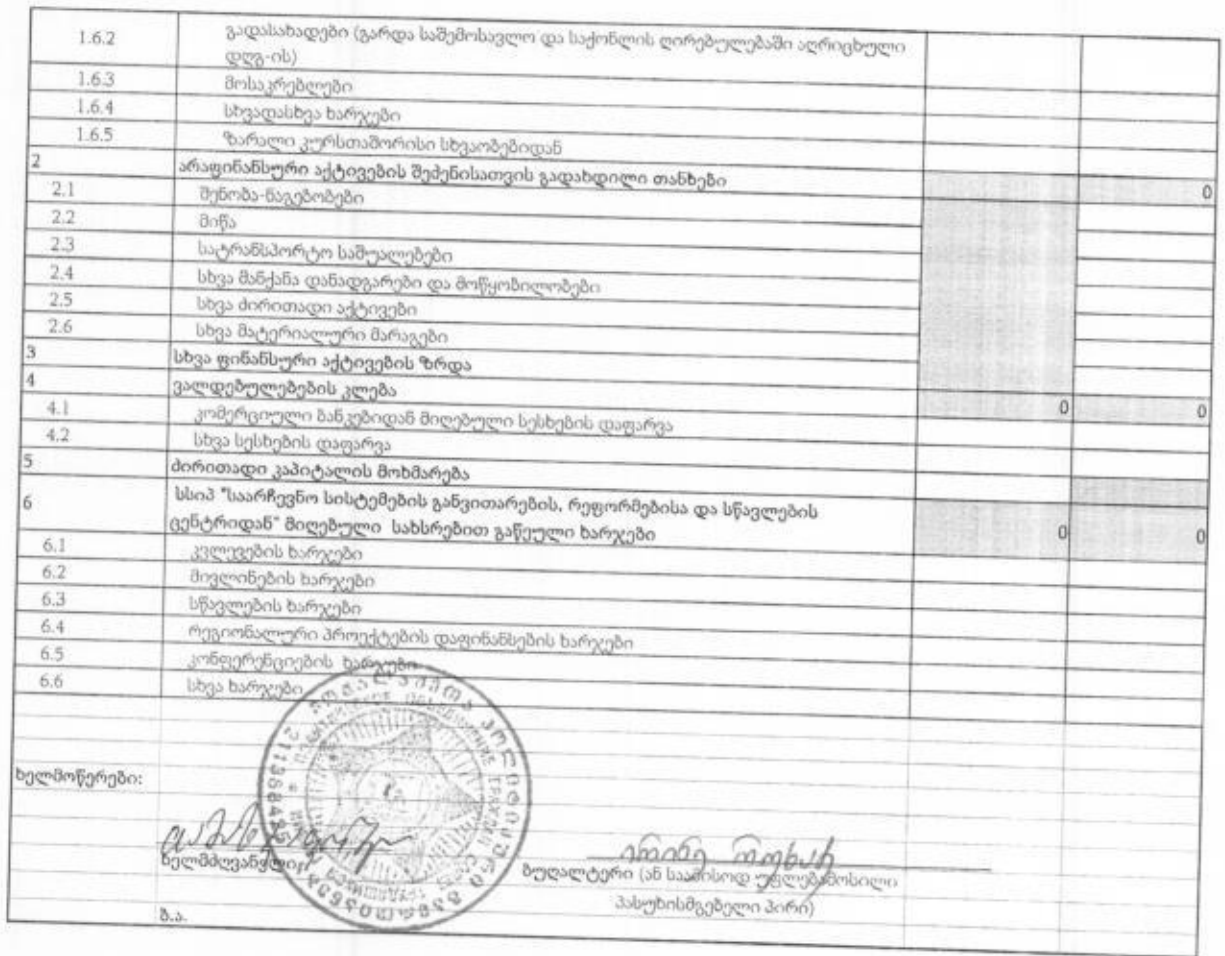 1.6.2 გადასახადები (გარდა საშემოსავლო და საქონლის ღირებულებაში აღრიცხული
დღგ-ის)
1.6.3 მოსაკრებლები
1.6.4 სხვადასხვა ხარჯები
1.6.5 ზარალი კურსთაშორისი სხვაობებიდან
2 არაფინანსური აქტივების შეძენისათვის გადახდილი თანხები 0
2.1 შენობა-ნაგებობები
2.2 მიწა
2.3 სატრანსპორტო საშუალებები
2.4 სხვა მანქანა დანადგარები და მოწყობილობები
2.5 სხვა ძირითადი აქტივები
2.6 სხვა მატერიალური მარაგები
3 სხვა ფინანსური აქტივების ზრდა
4 ვალდებულებების კლება 0 0
4.1 კომერციული ბანკებიდან მიღებული სესხების დაფარვა
4.2 სხვა სესხების დაფარვა
5 ძირითადი კაპიტალის მოხმარება
6 სსიპ "საარჩევნო სისტემების განვითარების, რეფორმებისა და სწავლების
ცენტრიდან" მიღებული სახსრებით გაწეული ხარჯები 0 0
6.1 კვლევების ხარჯები
6.2 მივლინების ხარჯები
6.3 სწავლების ხარჯები
6.4 რეგიონალური პროექტების დაფინანსების ხარჯები
6.5 კონფერენციების ხარჯები
6.6 სხვა ხარჯები
ხელმოწერები:
ხელმძღვანელი
ბუღალტერი (ან საამისოდ უფლებამოსილი
პასუხისმგებელი პირი)
ბ.ა.